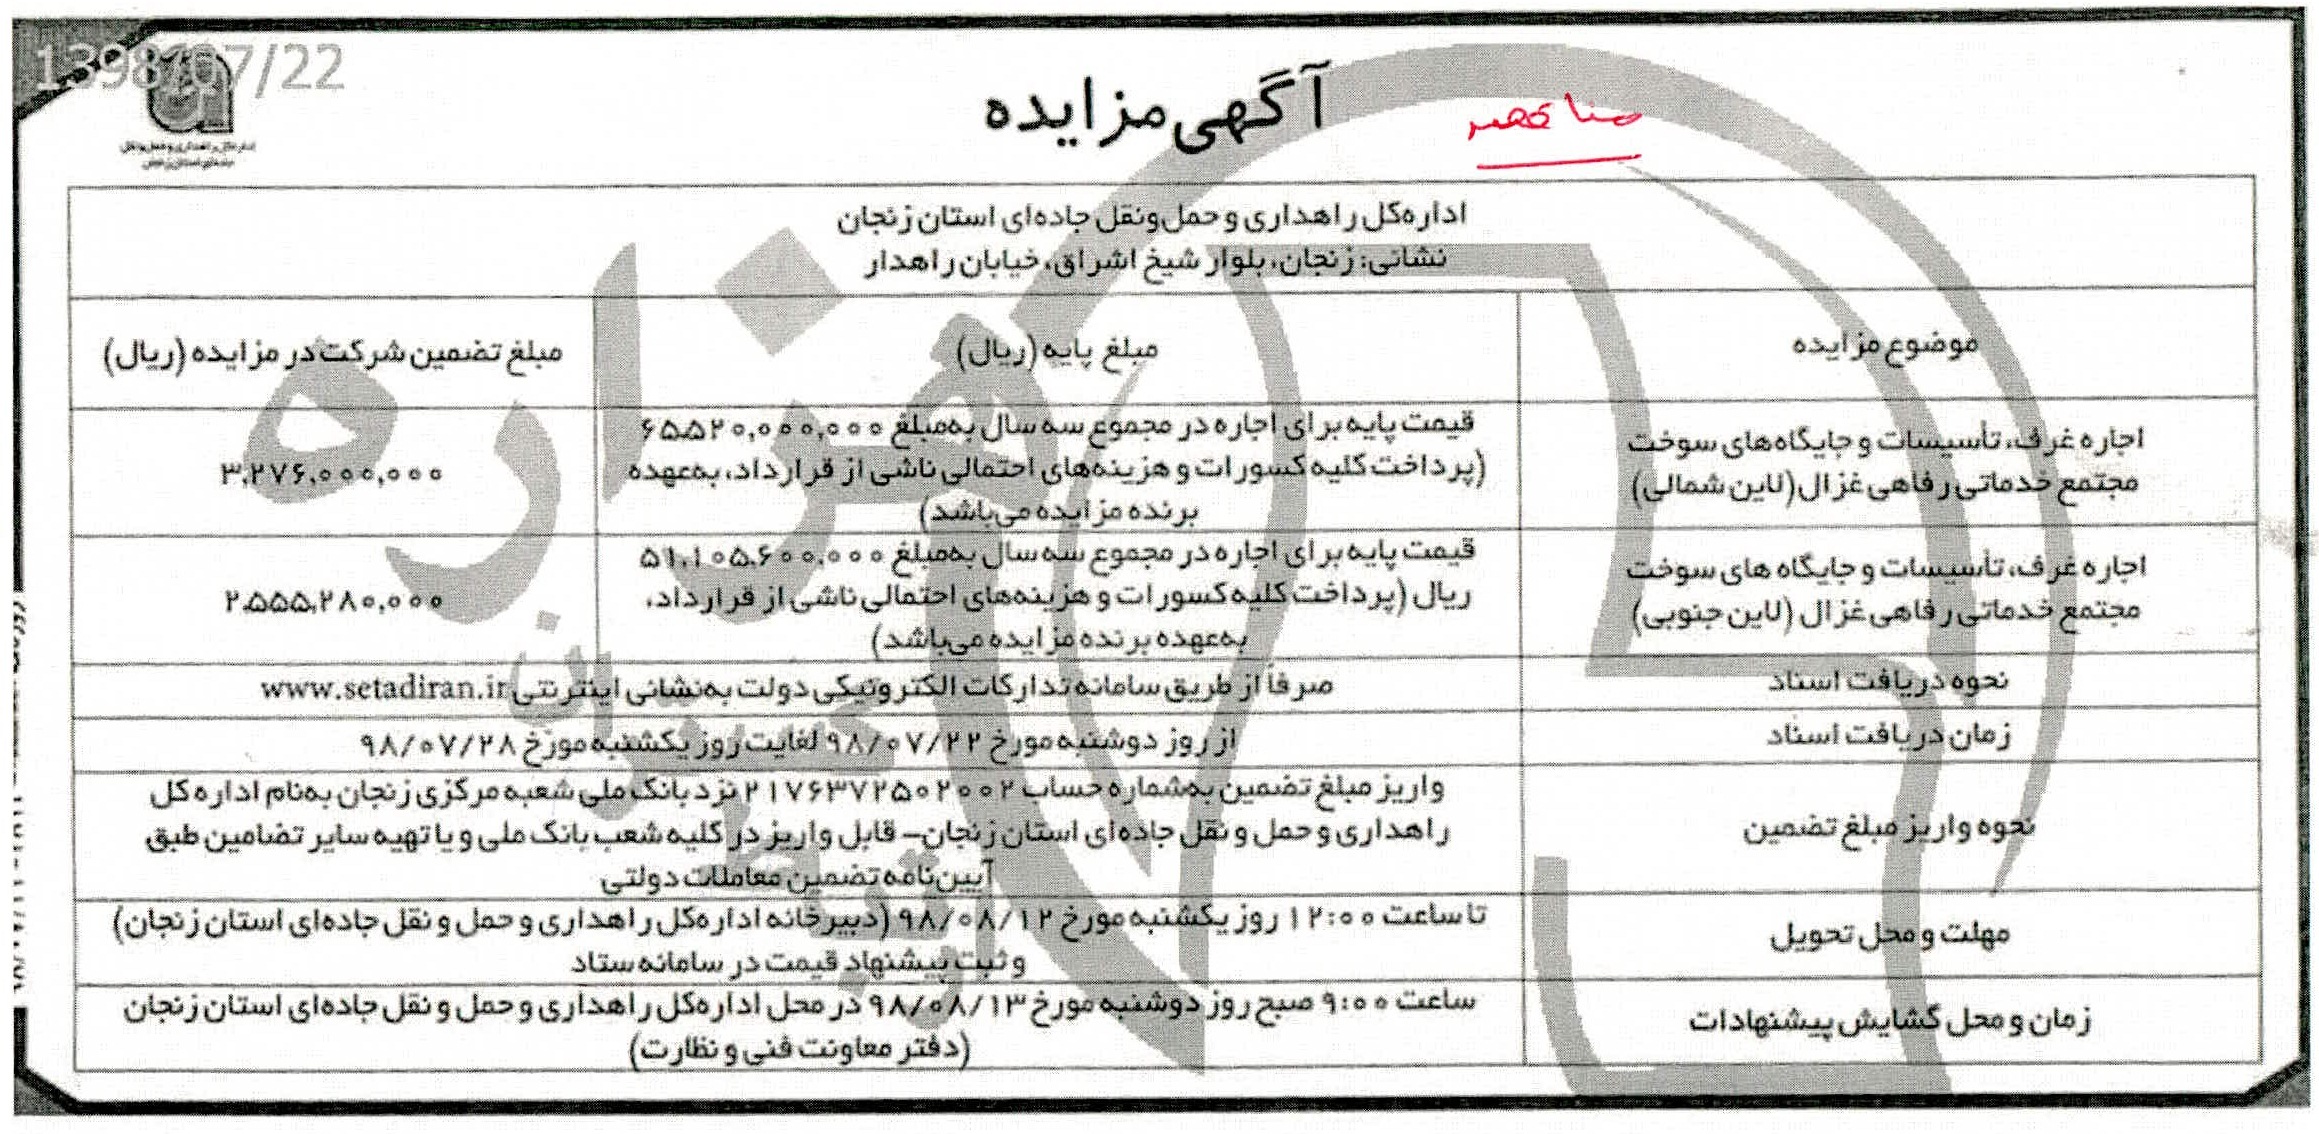 1398/07/22
آگهی مزایده
مناقصه
اداره‌کل راهداری و حمل‌ونقل
جاده‌ای استان زنجان
اداره‌کل راهداری و حمل‌ونقل جاده‌ای استان زنجان
نشانی: زنجان، بلوار شیخ اشراق، خیابان راهدار
موضوع مزایده
مبلغ پایه (ریال)
مبلغ تضمین شرکت در مزایده (ریال)
اجاره غرف، تأسیسات و جایگاه‌های سوخت
مجتمع خدماتی رفاهی غزال (لاین شمالی)
قیمت پایه برای اجاره در مجموع سه سال به‌مبلغ ۶۵،۵۲۰،۰۰۰،۰۰۰
(پرداخت کلیه کسورات و هزینه‌های احتمالی ناشی از قرارداد، به‌عهده
برنده مزایده می‌باشد)
۳،۲۷۶،۰۰۰،۰۰۰
اجاره غرف، تأسیسات و جایگاه های سوخت
مجتمع خدماتی رفاهی غزال (لاین جنوبی)
قیمت پایه برای اجاره در مجموع سه سال به‌مبلغ ۵۱،۱۰۵،۶۰۰،۰۰۰
ریال (پرداخت کلیه کسورات و هزینه‌های احتمالی ناشی از قرارداد،
به‌عهده برنده مزایده می‌باشد)
۲،۵۵۵،۲۸۰،۰۰۰
نحوه دریافت اسناد
صرفاً از طریق سامانه تدارکات الکترونیکی دولت به‌نشانی اینترنتی www.setadiran.ir
زمان دریافت اسناد
از روز دوشنبه مورخ ۹۸/۰۷/۲۲ لغایت روز یکشنبه مورخ ۹۸/۰۷/۲۸
نحوه واریز مبلغ تضمین
واریز مبلغ تضمین به‌شماره حساب ۲۱۷۶۳۷۲۵۰۲۰۰۲ نزد بانک ملی شعبه مرکزی زنجان به‌نام اداره کل
راهداری و حمل و نقل جاده‌ای استان زنجان– قابل واریز در کلیه شعب بانک ملی و یا تهیه سایر تضامین طبق
آیین‌نامه تضمین معاملات دولتی
مهلت و محل تحویل
تا ساعت ۱۲:۰۰ روز یکشنبه مورخ ۹۸/۰۸/۱۲ (دبیرخانه اداره‌کل راهداری و حمل و نقل جاده‌ای استان زنجان)
و ثبت پیشنهاد قیمت در سامانه ستاد
زمان و محل گشایش پیشنهادات
ساعت ۹:۰۰ صبح روز دوشنبه مورخ ۹۸/۰۸/۱۳ در محل اداره‌کل راهداری و حمل و نقل جاده‌ای استان زنجان
(دفتر معاونت فنی و نظارت)
هزاره